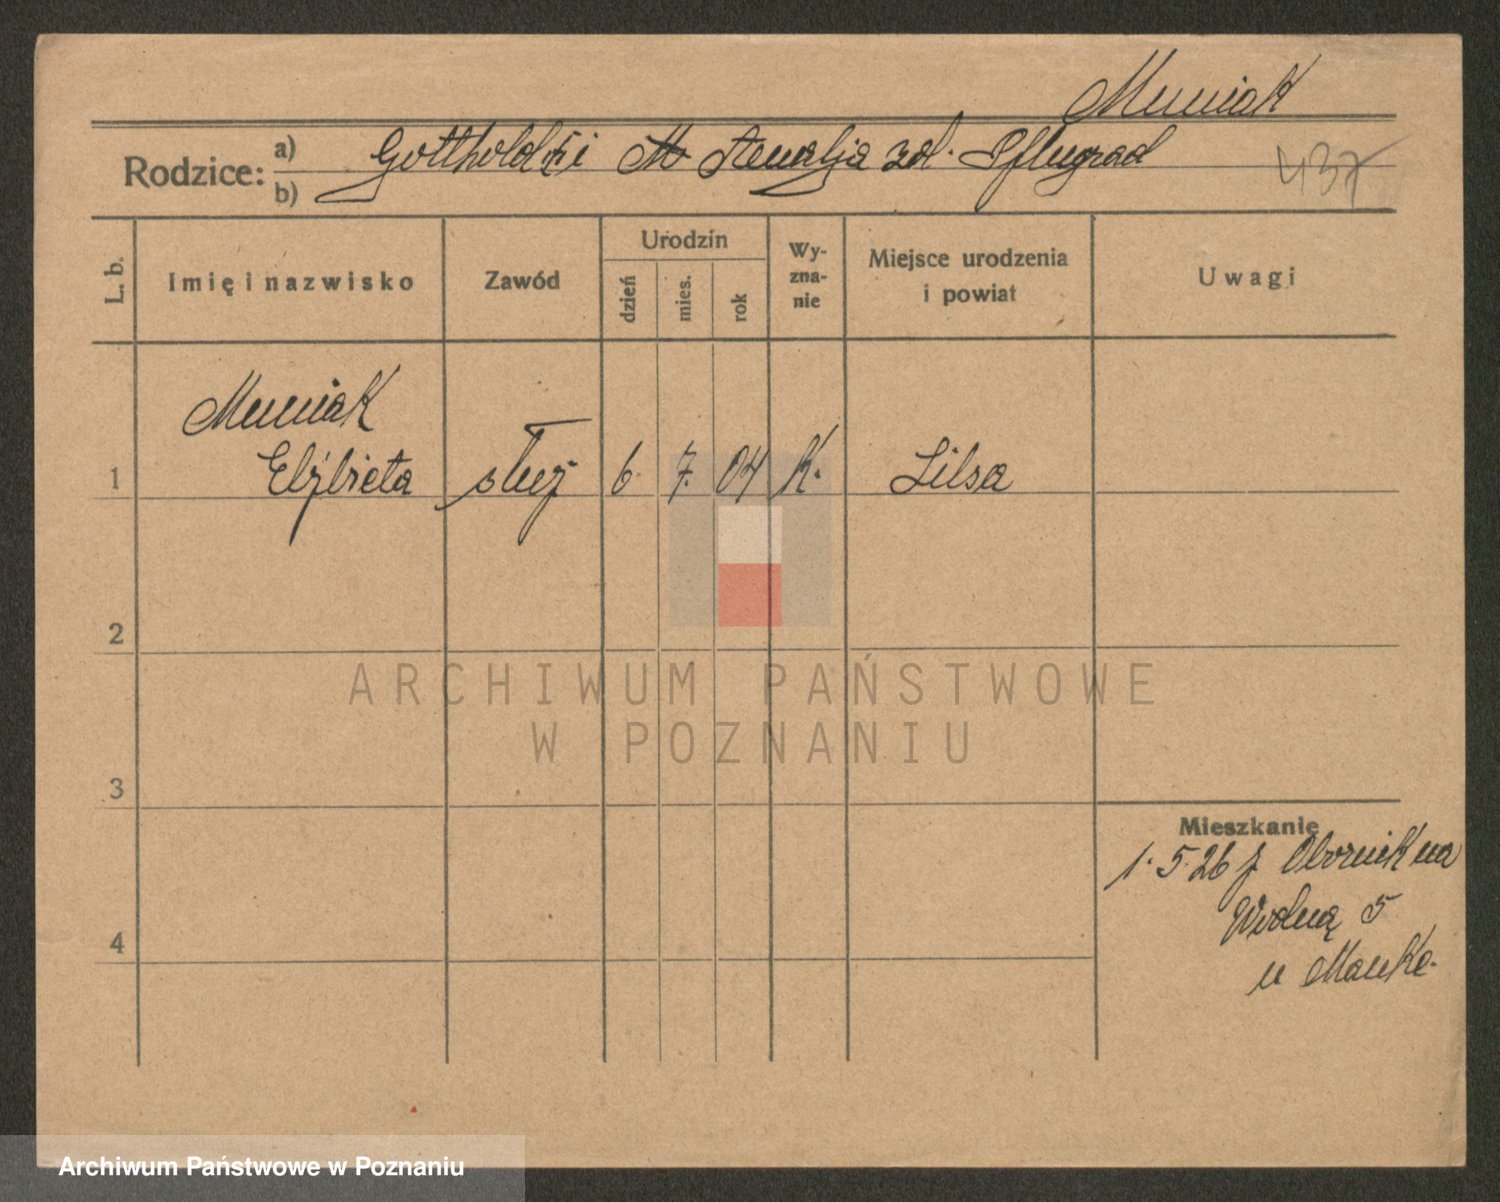 Muniak
Rodzice: a) Gotthold i Amalja zd. Pflugrad
b)
437
L. b.
Imię i nazwisko
Zawód
Urodzin
dzień
mies.
rok
Wy-
zna-
nie
Miejsce urodzenia
i powiat
Uwagi
Muniak
1 Elżbieta służ 6. 7. 04 K. Lilsa
2
ARCHIWUM PAŃSTWOWE
W POZNANIU
3
Mieszkanie
1. 5. 26 z Obornik na
Wolną 5
u Manke.
4
Archiwum Państwowe w Poznaniu